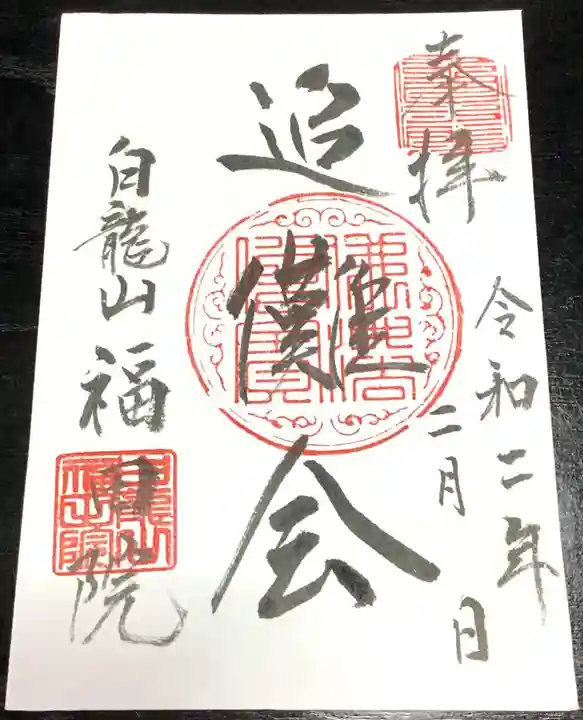 奉拝
令和二年
二月 日
追儺会
白龍山福田院